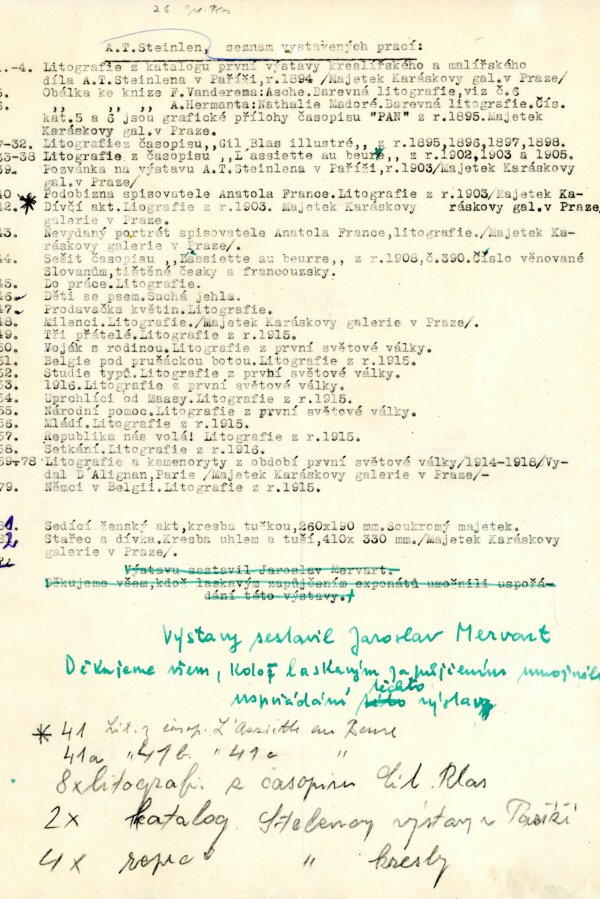 26
A.T.Steinlen, seznam vystavených prací:
1.-4. Litografie z katalogu první výstavy kreslířského a malířského
díla A.T.Steinlena v Paříži,r.1894 /Majetek Karáskovy gal.v Praze/
5. Obálka ke knize F.Vanderema:Asche.Barevná litografie,viz č.6
6. ,, ,, ,, A.Hermanta:Nathalie Madoré.Barevná litografie.Čís.
kat.5 a 6 jsou grafické přílohy časopisu "PAN" z r.1895.Majetek
Karáskovy gal.v Praze.
7-32. Litografiez časopisu,,Gil Blas illustré,, z r.1895,1896,1897,1898.
33-38 Litografie z časopisu ,,L assiette au beure,, z r.1902,1903 a 1905.
39. Pozvánka na výstavu A.T.Steinlena v Paříži,r.1903/Majetek Karáskovy
gal.v Praze/
40 Podobizna spisovatele Anatola France.Litografie z r.1903/Majetek Ka-
42. Dívčí akt.Litografie z r.1903. Majetek Karáskovy ráskovy gal.v Praze/
galerie v Praze.
43. Nevydaný portrét spisovatele Anatola France,litografie./Majetek Ka-
ráskovy galerie v Praze/.
44. Sešit časopisu ,,Lassiette au beurre,, z r.1908,č.390.Číslo věnované
Slovanům,tištěné česky a francouzsky.
45. Do práce.Litografie.
46. Děti se psem.Suchá jehla.
47. Prodavačka květin.Litografie.
48. Milenci.Litografie./Majetek Karáskovy galerie v Praze/.
49. Tři přátelé.Litografie z r.1915.
50. Voják s rodinou.Litografie z první světové války.
51. Belgie pod prušáckou botou.Litografie z r.1915.
52. Studie typů.Litografie z první světové války.
53. 1916.Litografie z první světové války.
54. Uprchlíci od Maasy.Litografie z r.1915.
55. Národní pomoc.Litografie z první světové války.
56. Mládí.Litografie z r.1915.
57. Republika nás volá! Litografie z r.1915.
58. Setkání.Litografie z r.1916.
59-78 Litografie a kamenoryty z období první světové války/1914-1918/Vy-
dal D'Alignan,Paris /Majetek Karáskovy galerie v Praze/-
79. Němci v Belgii.Litografie z r.1915.
1 Sedící ženský akt,kresba tužkou,260x190 mm.Soukromý majetek.
2 Stařec a dívka.Kresba uhlem a tuší,410x 330 mm./Majetek Karáskovy
galerie v Praze/.
Výstavu sestavil Jaroslav Mervart.
Děkujeme všem,kdož laskavým zapůjčením exponátů umožnili uspořá-
dání této výstavy.
Výstavy sestavil Jaroslav Mervart
Děkujeme všem, kdož laskavým zapůjčením umožnili
těchto
uspořádání této výstavy
* 41 Lit. z časop. L'Assiette au Beure
41a " 41b. " 41c "
8x litografi. z časopisu Gil. Blas
2x katalog Stelenovy výstavy v Paříži
4x repro " kresby